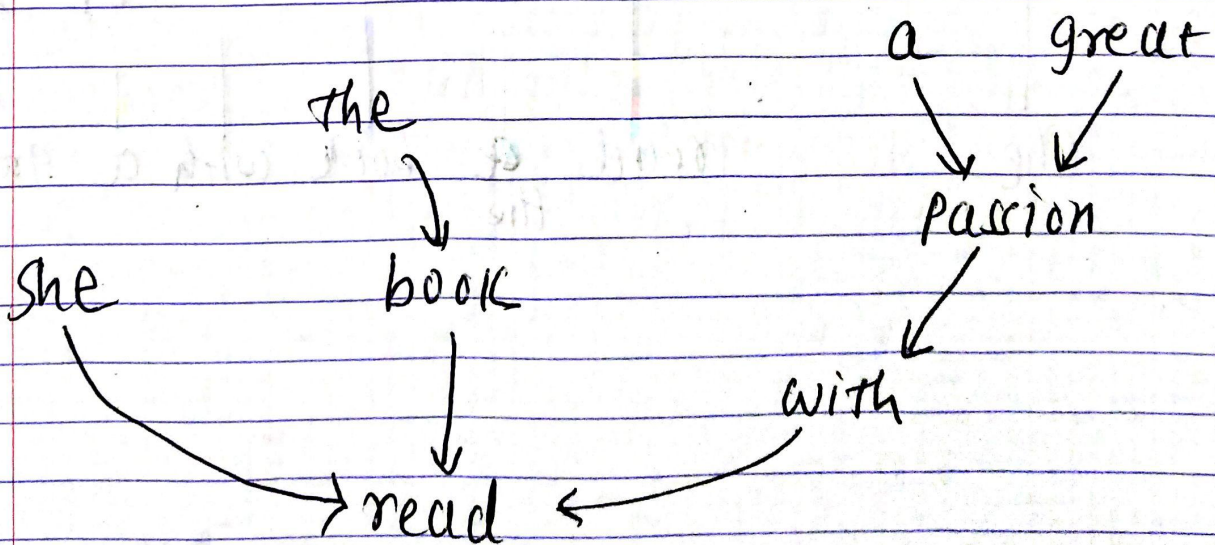 a great
the
passion
she book
with
read